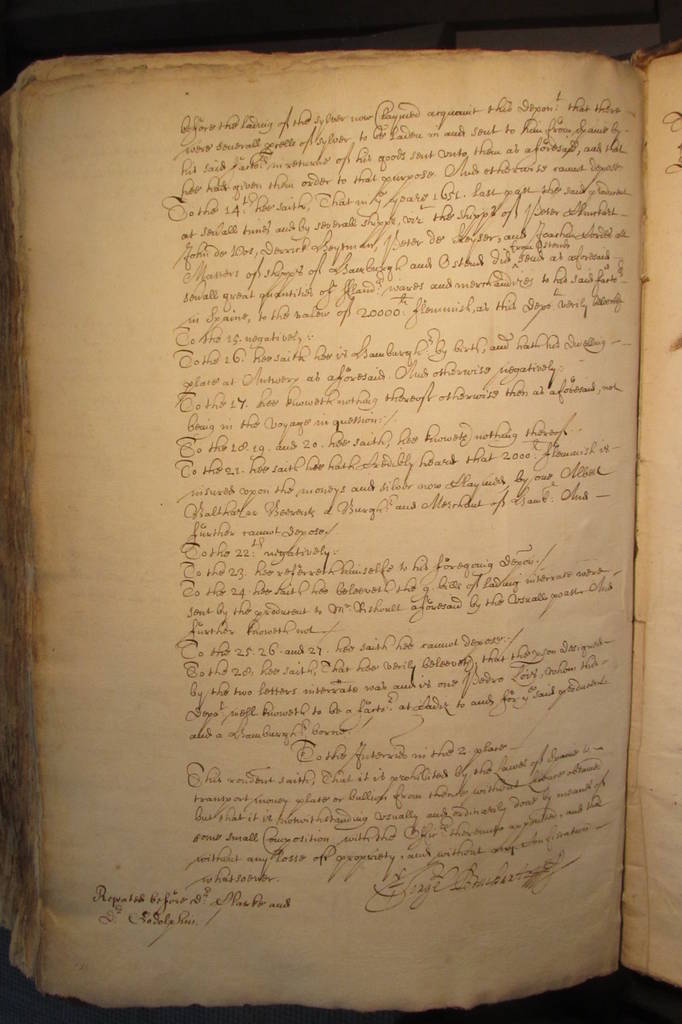 before the lading of the sylver now claymed acquaint this depon:t that there
were severall prcells of sylver to be laden in and sent to him from Spaine by
his said factors in returne of his goods sent unto them as aforesaid, and that
hee had given them order to that purpose. And otherwise cannot depose
To the 14:th hee saith, That in ye yeare 1651. last past the said producent
at severall times and by severall shipps, vizt the shipps of Peter
John de Vos, Derrick Heytman, Peter de Keyser, and Joachim all
from Ostend
Masters of shipps of Hamburgh and Ostend did send as aforesaid
severall great quantities of Flandrs wares and merchandizes to his said factors
in Spaine, to the valew of 20000:li Flemmish, as this depot verily beleeveth
To the 15. negatively:
To the 16. hee saith hee is a Hamburghr by birth, and hath his dwelling
place at Antwerp as aforesaid. And otherwise negatively:
To the 17. hee knoweth nothing thereof otherwise then as aforesaid, not
being in the voyage in question:/
To the 18. 19. and 20. hee saith, hee knoweth nothing thereof.
To the 21. hee saith hee hath credibly heard that 2000:li Flemmish is
insured upon the moneys and silver now claymed by one Albert
Balthazar Beerents a Burghr and Merchant of Hamb: And
further cannot depose/
To the 22:th negatively:
To the 23. hee referreth himselfe to his foregoing depon:/
To the 24. hee saith hee beleeveth the 9. bills of lading interrate were
sent by the producent to Mr aforesaid by the usuall poast. And
further knoweth not /
To the 25. 26. and 27. hee saith hee cannot depose:/
To the 28. hee saith, That hee verily beleeveth, that the pson designed
by the two letters interrate was and is one Pedro whom this
depot well knoweth to be a factor at Cadiz to and for ye said producent
and a Hamburghr borne/
To the Interries in the 2. place
This rondent saith, That it is prohibited by the lawes of Spaine to
transport money plate or bullion from thence without licence obtained
but that it is notwithstanding usually and ordinarily done by meanes of
some small composition with the Officrs thereunto appointed, and that
without any losse of propriety, and without any
whatsoever.
Repeated before Dr Clarke and
Dr Godolphin.